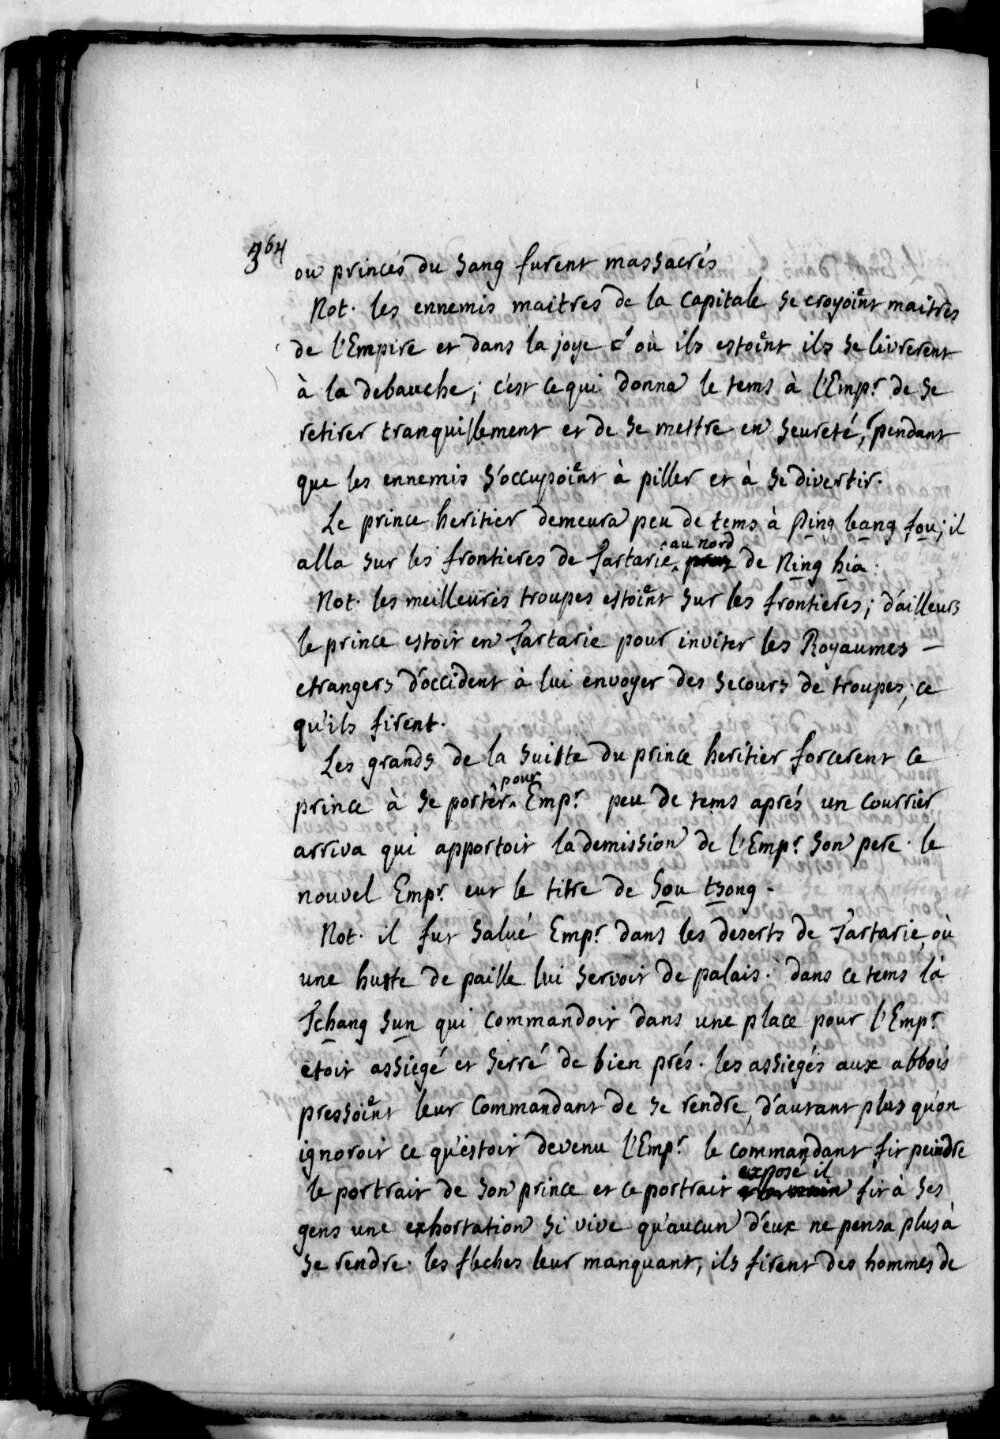 364
ou princes du sang furent massacrés
Not. les ennemis maitres de la capitale se croyoient maitres
de l'Empire et dans la joye d'où ils estoient ils se livrerent
à la debauche; c'est ce qui donna le tems à l'Empr de se
retirer tranquillement et de se mettre en seureté, pendant
que les ennemis s'occupoient à piller et à se divertir.
Le prince heritier demeura peu de tems à Ping leang fou; il
alla sur les frontieres de Tartarie au nord de Ning hia.
Not. les meilleures troupes estoient sur les frontieres; d'ailleurs
le prince estoit en Tartarie pour inviter les Royaumes
etrangers d'occident à lui envoyer des secours de troupes, ce
qu'ils firent.
Les grands de la suitte du prince heritier forcerent ce
prince à se porter pour Empr. peu de tems aprés un courrier
arriva qui apportoit la demission de l'Empr son pere. le
nouvel Empr. eut le titre de Sou tsong.
Not. il fut salué Empr. dans les deserts de Tartarie, où
une hutte de paille lui servoit de palais. dans ce tems là
Tchang Sun qui commandoit dans une place pour l'Empr
étoit assiegé et serré de bien prés. les assiegés aux abbois
pressoient leur commandant de se rendre, d'autant plus qu'on
ignoroit ce qu'estoit devenu l'Empr. le commandant fit peindre
le portrait de son prince et ce portrait exposé il fit à ses
gens une exhortation si vive qu'aucun d'eux ne pensa plus à
se rendre. les fleches leur manquant, ils firent des hommes de